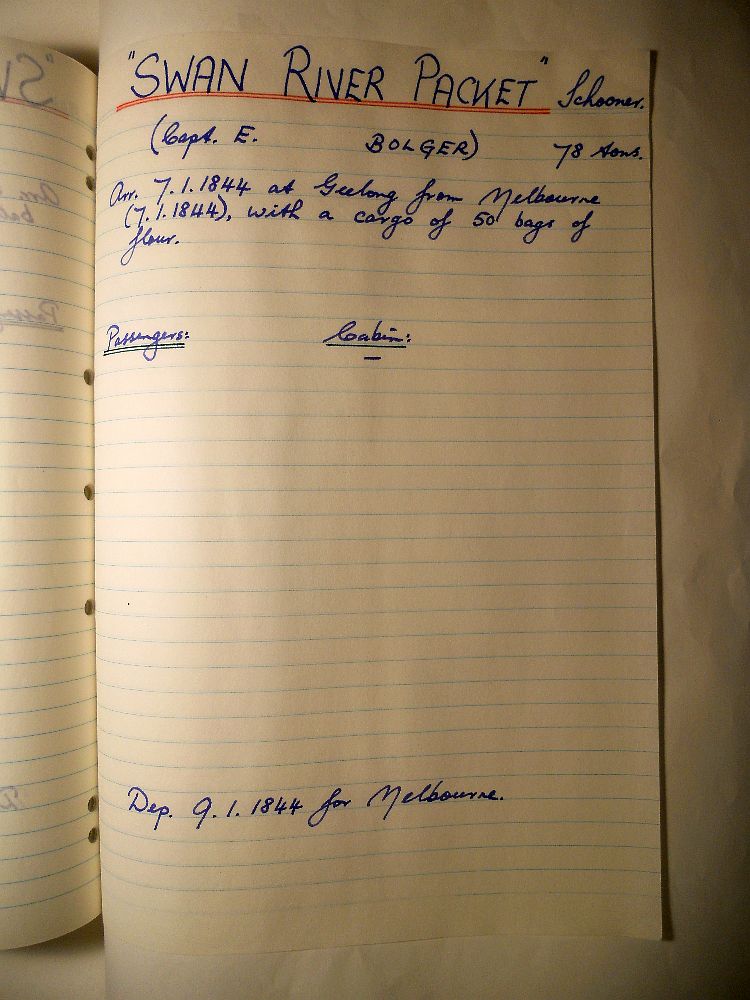 "SWAN RIVER PACKET" Schooner.
(Capt. E. BOLGER) 78 tons.
Arr. 7.1.1844 at Geelong from Melbourne
(7.1.1844), with a cargo of 50 bags of
flour.
Passengers: Cabin:
–
Dep. 9.1.1844 for Melbourne.